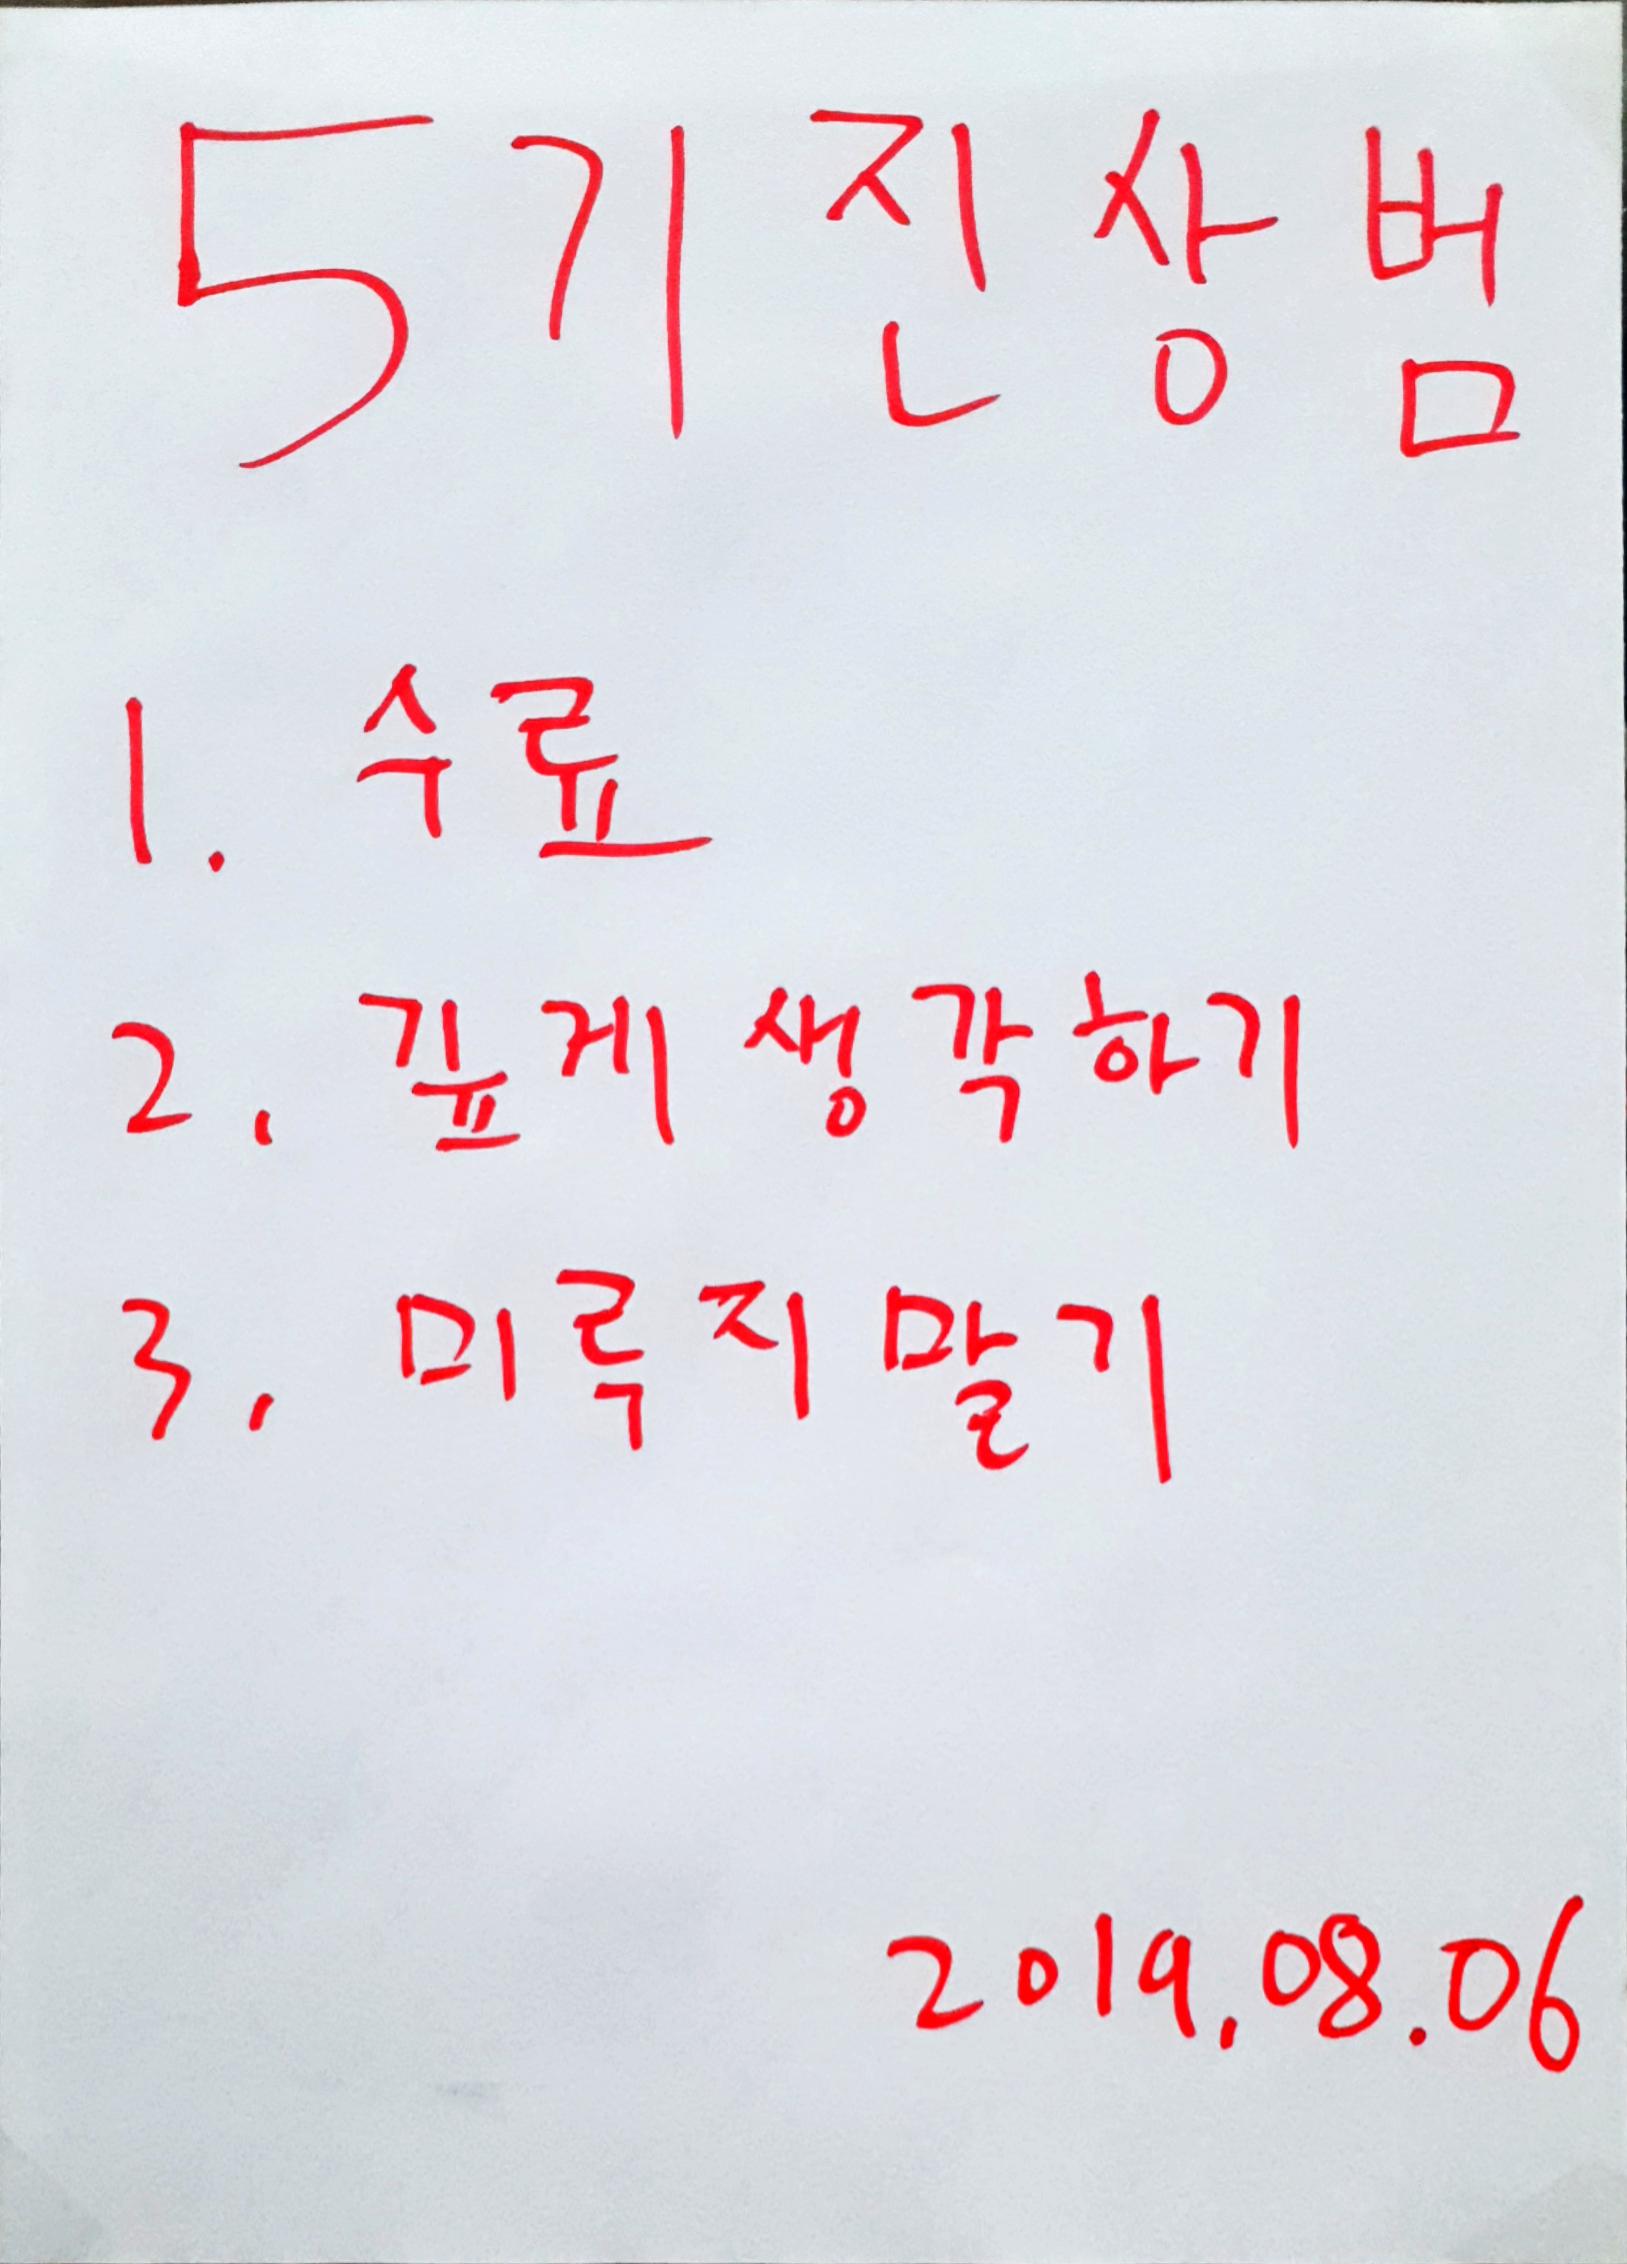 5기 진상범
1. 수료
2. 깊게 생각하기
3. 미루지 말기
2019.08.06